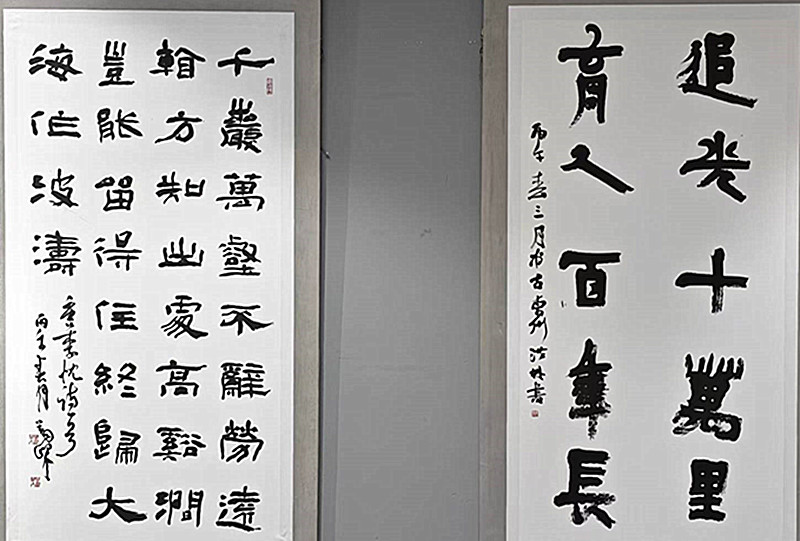 追光十萬里
育人百年長
丙午春三月於古虔州
千巖萬壑不辭勞遠
看方知出處高谿澗
豈能留得住終歸大
海作波濤
唐李忱詩句
丙午春月